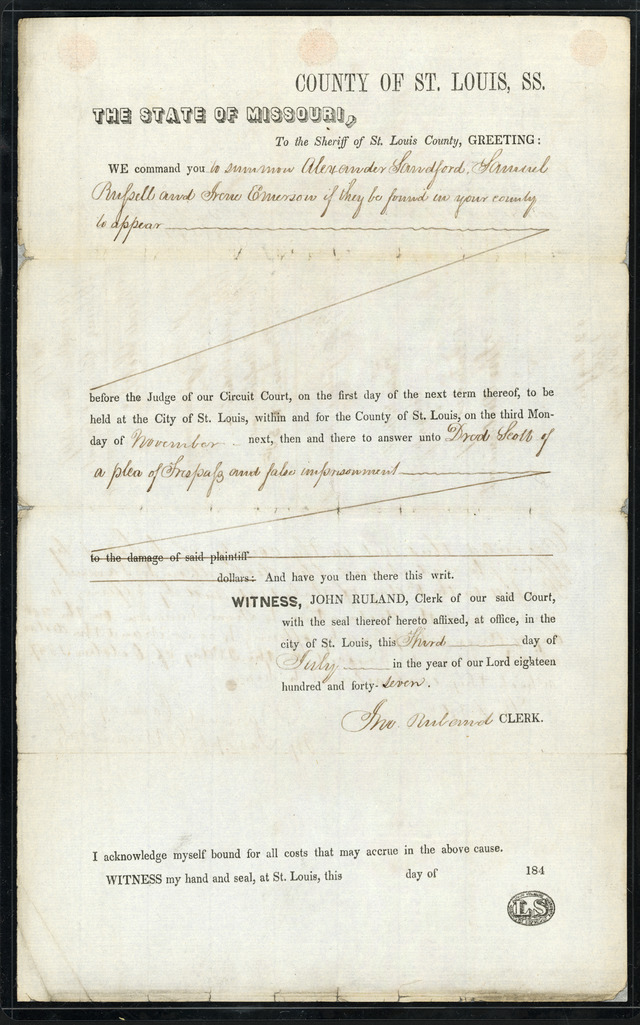 COUNTY OF ST. LOUIS, SS.
THE STATE OF MISSOURI,
To the Sheriff of St. Louis County, GREETING:
WE command you to summon Alexander Sandford, Samuel
Russell and Irene Emerson if they be found in your county
to appear
before the Judge of our Circuit Court, on the first day of the next term thereof, to be
held at the City of St. Louis, within and for the County of St. Louis, on the third Mon-
day of November next, then and there to answer unto Dred Scott of
a plea of Trespass and false imprisonment
to the damage of said plaintiff
dollars: And have you then there this writ.
WITNESS, JOHN RULAND, Clerk of our said Court,
with the seal thereof hereto affixed, at office, in the
city of St. Louis, this Third day of
July in the year of our Lord eighteen
hundred and forty-seven.
Jno. Ruland CLERK.
I acknowledge myself bound for all costs that may accrue in the above cause.
WITNESS my hand and seal, at St. Louis, this day of 184
LS